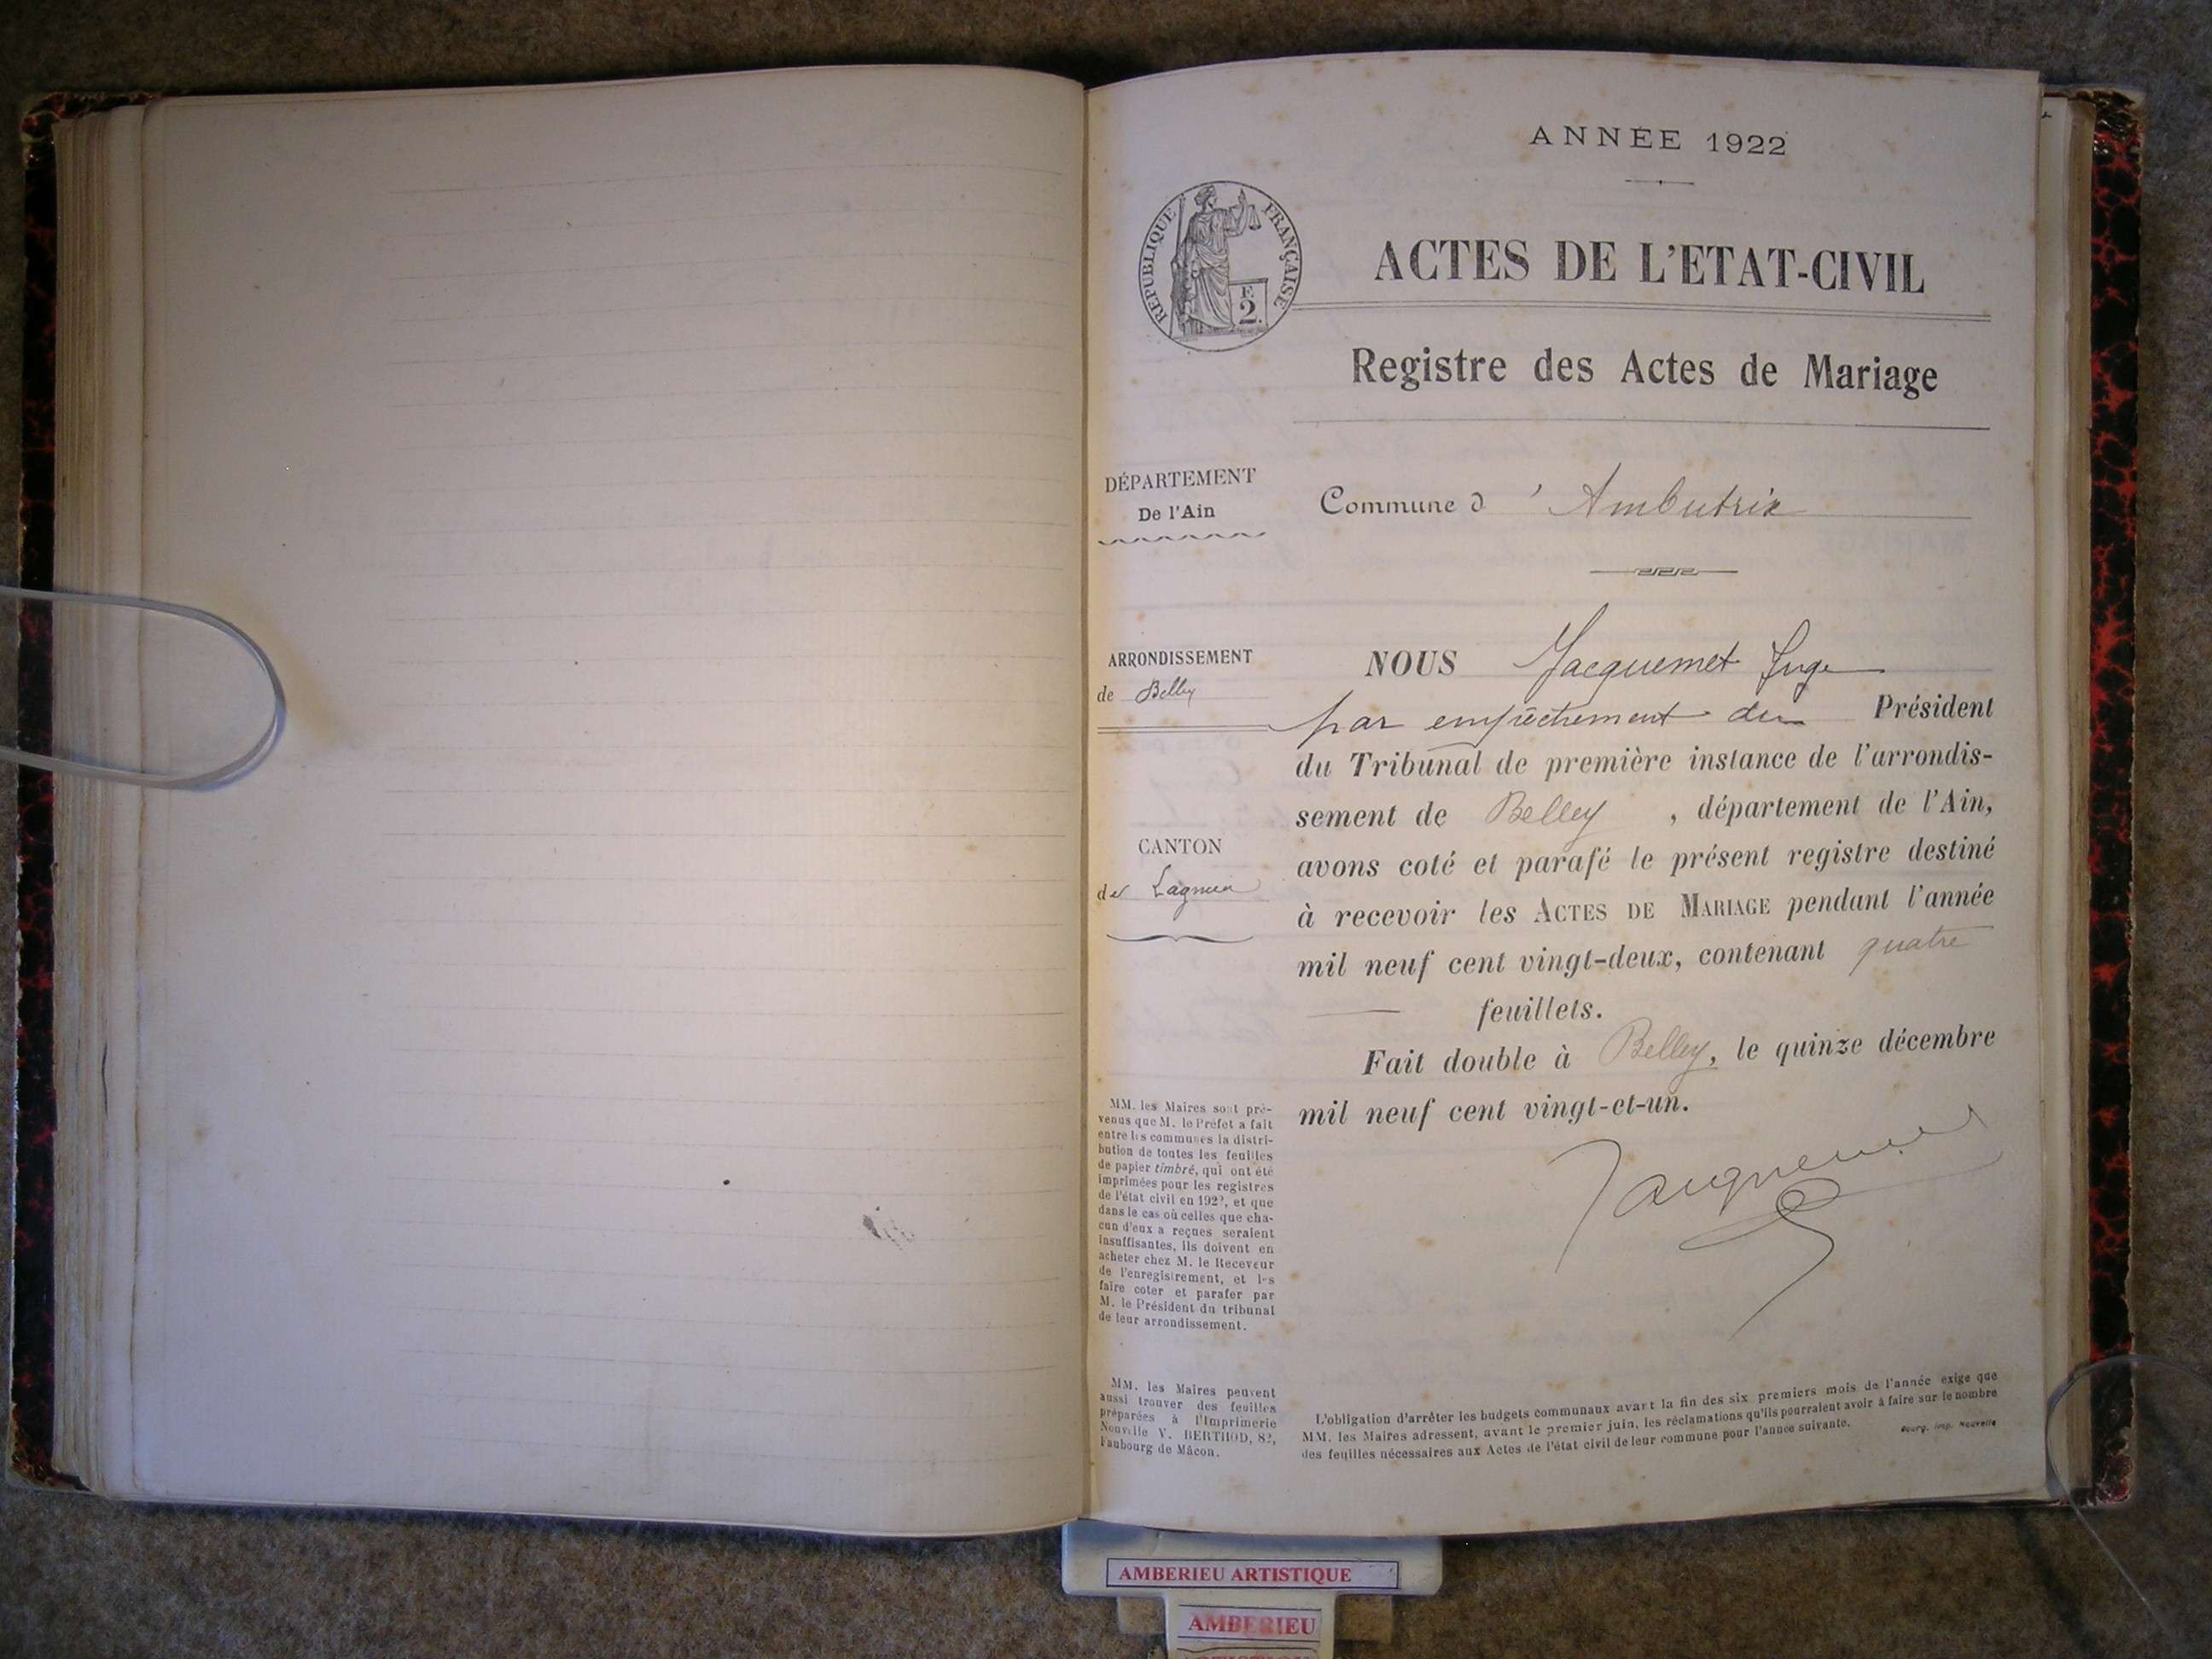 ANNÉE 1922
RÉPUBLIQUE FRANÇAISE
F
2.
ACTES DE L'ETAT-CIVIL
Registre des Actes de Mariage
DÉPARTEMENT
De l'Ain
Commune d'Ambutrix
ARRONDISSEMENT
de Belley
CANTON
de Lagnieu
NOUS Jacquemet Juge
par empêchement du Président
du Tribunal de première instance de l'arrondis-
sement de Belley, département de l'Ain,
avons coté et parafé le présent registre destiné
à recevoir les ACTES DE MARIAGE pendant l'année
mil neuf cent vingt-deux, contenant quatre
feuillets.
Fait double à Belley, le quinze décembre
mil neuf cent vingt-et-un.
MM. les Maires sont pré-
venus que M. le Préfet a fait
entre les communes la distri-
bution de toutes les feuilles
de papier timbré, qui ont été
imprimées pour les registres
de l'état civil en 1922, et que
dans le cas où celles que cha-
cun d'eux a reçues seraient
insuffisantes, ils doivent en
acheter chez M. le Receveur
de l'enregistrement, et les
faire coter et parafer par
M. le Président du tribunal
de leur arrondissement.
MM. les Maires peuvent
aussi trouver des feuilles
préparées à l'Imprimerie
Nouvelle V. BERTHOD, 82,
Faubourg de Mâcon.
L'obligation d'arrêter les budgets communaux avant la fin des six premiers mois de l'année exige que
MM. les Maires adressent, avant le premier juin, les réclamations qu'ils pourraient avoir à faire sur le nombre
des feuilles nécessaires aux Actes de l'état civil de leur commune pour l'année suivante.
Bourg, Imp. Nouvelle
AMBERIEU ARTISTIQUE
AMBERIEU